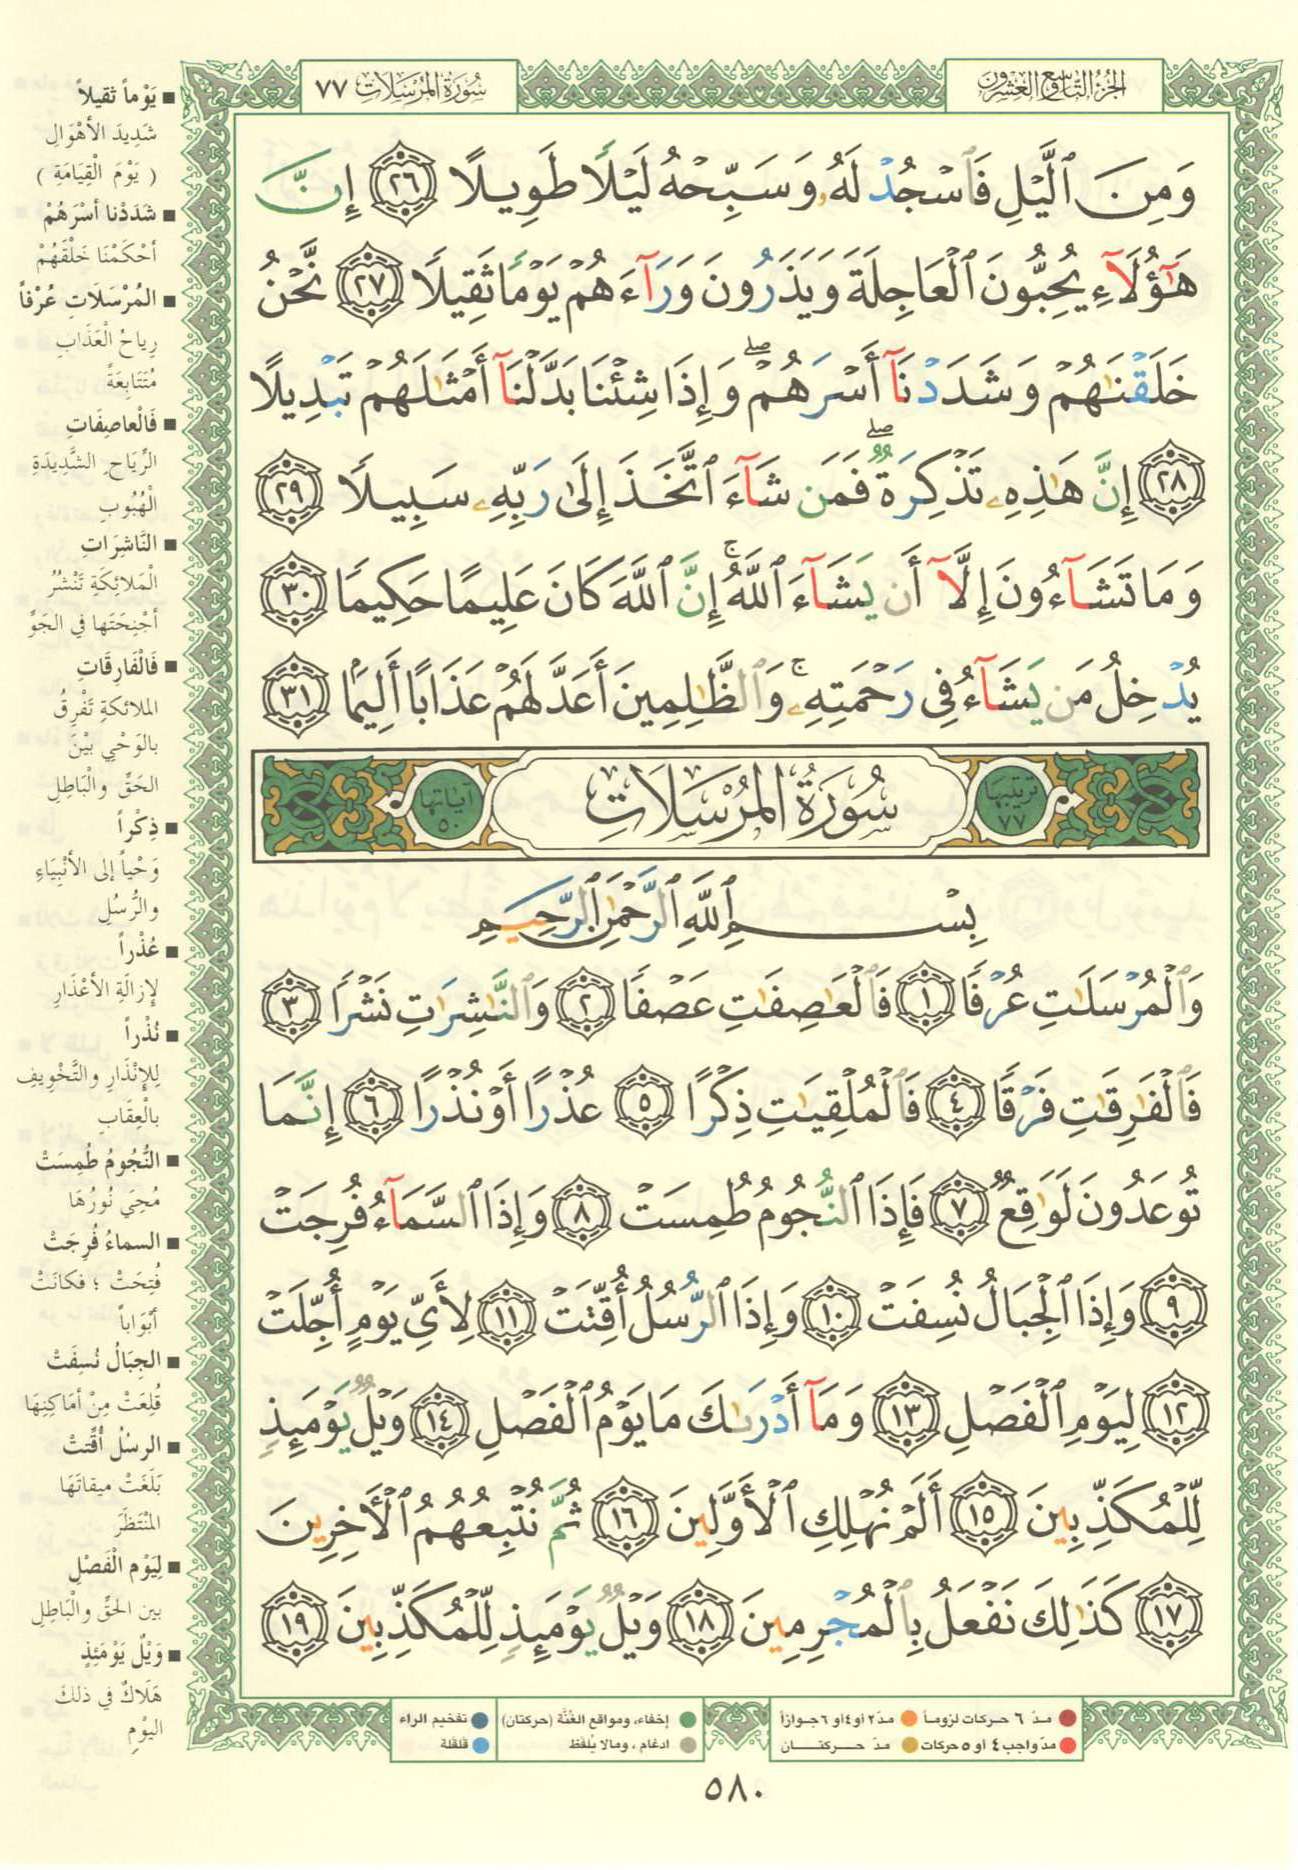 الجزء التاسع والعشرون
سورة المرسلات ٧٧
وَمِنَ ٱلَّيۡلِ فَٱسۡجُدۡ لَهُۥ وَسَبِّحۡهُ لَيۡلٗا طَوِيلًا ٢٦ إِنَّ
هَٰٓؤُلَآءِ يُحِبُّونَ ٱلۡعَاجِلَةَ وَيَذَرُونَ وَرَآءَهُمۡ يَوۡمٗا ثَقِيلٗا ٢٧ نَّحۡنُ
خَلَقۡنَٰهُمۡ وَشَدَدۡنَآ أَسۡرَهُمۡۖ وَإِذَا شِئۡنَا بَدَّلۡنَآ أَمۡثَٰلَهُمۡ تَبۡدِيلًا
٢٨ إِنَّ هَٰذِهِۦ تَذۡكِرَةٞۖ فَمَن شَآءَ ٱتَّخَذَ إِلَىٰ رَبِّهِۦ سَبِيلٗا ٢٩
وَمَا تَشَآءُونَ إِلَّآ أَن يَشَآءَ ٱللَّهُۚ إِنَّ ٱللَّهَ كَانَ عَلِيمًا حَكِيمٗا ٣٠
يُدۡخِلُ مَن يَشَآءُ فِي رَحۡمَتِهِۦۚ وَٱلظَّٰلِمِينَ أَعَدَّ لَهُمۡ عَذَابًا أَلِيمَۢا ٣١
ترتيبها ٧٧ سُورَةُ المُرْسَلَاتِ آياتها ٥٠
بِسۡمِ ٱللَّهِ ٱلرَّحۡمَٰنِ ٱلرَّحِيمِ
وَٱلۡمُرۡسَلَٰتِ عُرۡفٗا ١ فَٱلۡعَٰصِفَٰتِ عَصۡفٗا ٢ وَٱلنَّٰشِرَٰتِ نَشۡرٗا ٣
فَٱلۡفَٰرِقَٰتِ فَرۡقٗا ٤ فَٱلۡمُلۡقِيَٰتِ ذِكۡرًا ٥ عُذۡرًا أَوۡ نُذۡرًا ٦ إِنَّمَا
تُوعَدُونَ لَوَٰقِعٞ ٧ فَإِذَا ٱلنُّجُومُ طُمِسَتۡ ٨ وَإِذَا ٱلسَّمَآءُ فُرِجَتۡ
٩ وَإِذَا ٱلۡجِبَالُ نُسِفَتۡ ١٠ وَإِذَا ٱلرُّسُلُ أُقِّتَتۡ ١١ لِأَيِّ يَوۡمٍ أُجِّلَتۡ
١٢ لِيَوۡمِ ٱلۡفَصۡلِ ١٣ وَمَآ أَدۡرَىٰكَ مَا يَوۡمُ ٱلۡفَصۡلِ ١٤ وَيۡلٞ يَوۡمَئِذٖ
لِّلۡمُكَذِّبِينَ ١٥ أَلَمۡ نُهۡلِكِ ٱلۡأَوَّلِينَ ١٦ ثُمَّ نُتۡبِعُهُمُ ٱلۡأٓخِرِينَ
١٧ كَذَٰلِكَ نَفۡعَلُ بِٱلۡمُجۡرِمِينَ ١٨ وَيۡلٞ يَوۡمَئِذٖ لِّلۡمُكَذِّبِينَ ١٩
■ يَوْماً ثقيلاً
شَدِيدَ الأهْوَالِ
( يَوْمَ الْقِيَامَةِ )
■ شَدَدْنا أسْرَهُمْ
أحْكَمْنَا خَلْقَهُمْ
■ المُرْسَلَاتِ عُرْفاً
رِياحُ الْعَذَابِ
مُتَتَابِعَةً
■ فَالْعاصِفَاتِ
الرِّيَاحِ الشَّدِيدَةِ
الْهُبُوبِ
■ النَّاشِرَاتِ
الْمَلائِكَةِ تَنْشُرُ
أجْنِحَتَها في الجَوِّ
■ فَالْفَارِقَاتِ
الملائكةِ تَفْرِقُ
بالوَحْيِ بَيْنَ
الحَقِّ والْبَاطِلِ
■ ذِكْراً
وَحْياً إلى الأنْبِيَاءِ
والرُّسُلِ
■ عُذْراً
لإزالَةِ الأعْذَارِ
■ نُذْراً
لِلإنْذَارِ والتَّخْوِيفِ
بالْعِقَابِ
■ النُّجُومُ طُمِسَتْ
مُحِيَ نُورُهَا
■ السماءُ فُرِجَتْ
فُتِحَتْ ؛ فكانَتْ
أبْوَاباً
■ الجِبَالُ نُسِفَتْ
قُلِعَتْ مِنْ أمَاكِنِهَا
■ الرسُلُ أُقِّتَتْ
بَلَغَتْ ميقاتَهَا
المُنْتَظَرَ
■ لِيَوْمِ الْفَصْلِ
بين الحَقِّ والْبَاطِلِ
■ وَيْلٌ يَوْمَئِذٍ
هَلَاكٌ في ذلكَ
اليوْمِ
مدّ ٦ حركات لزوماً مدّ ٢ أو ٤ أو ٦ جوازاً
مدّ واجب ٤ أو ٥ حركات مدّ حركتان
إخفاء، ومواقع الغُنَّة (حركتان)
ادغام ، ومالا يُلفَظ
تفخيم الراء
قلقلة
٥٨٠